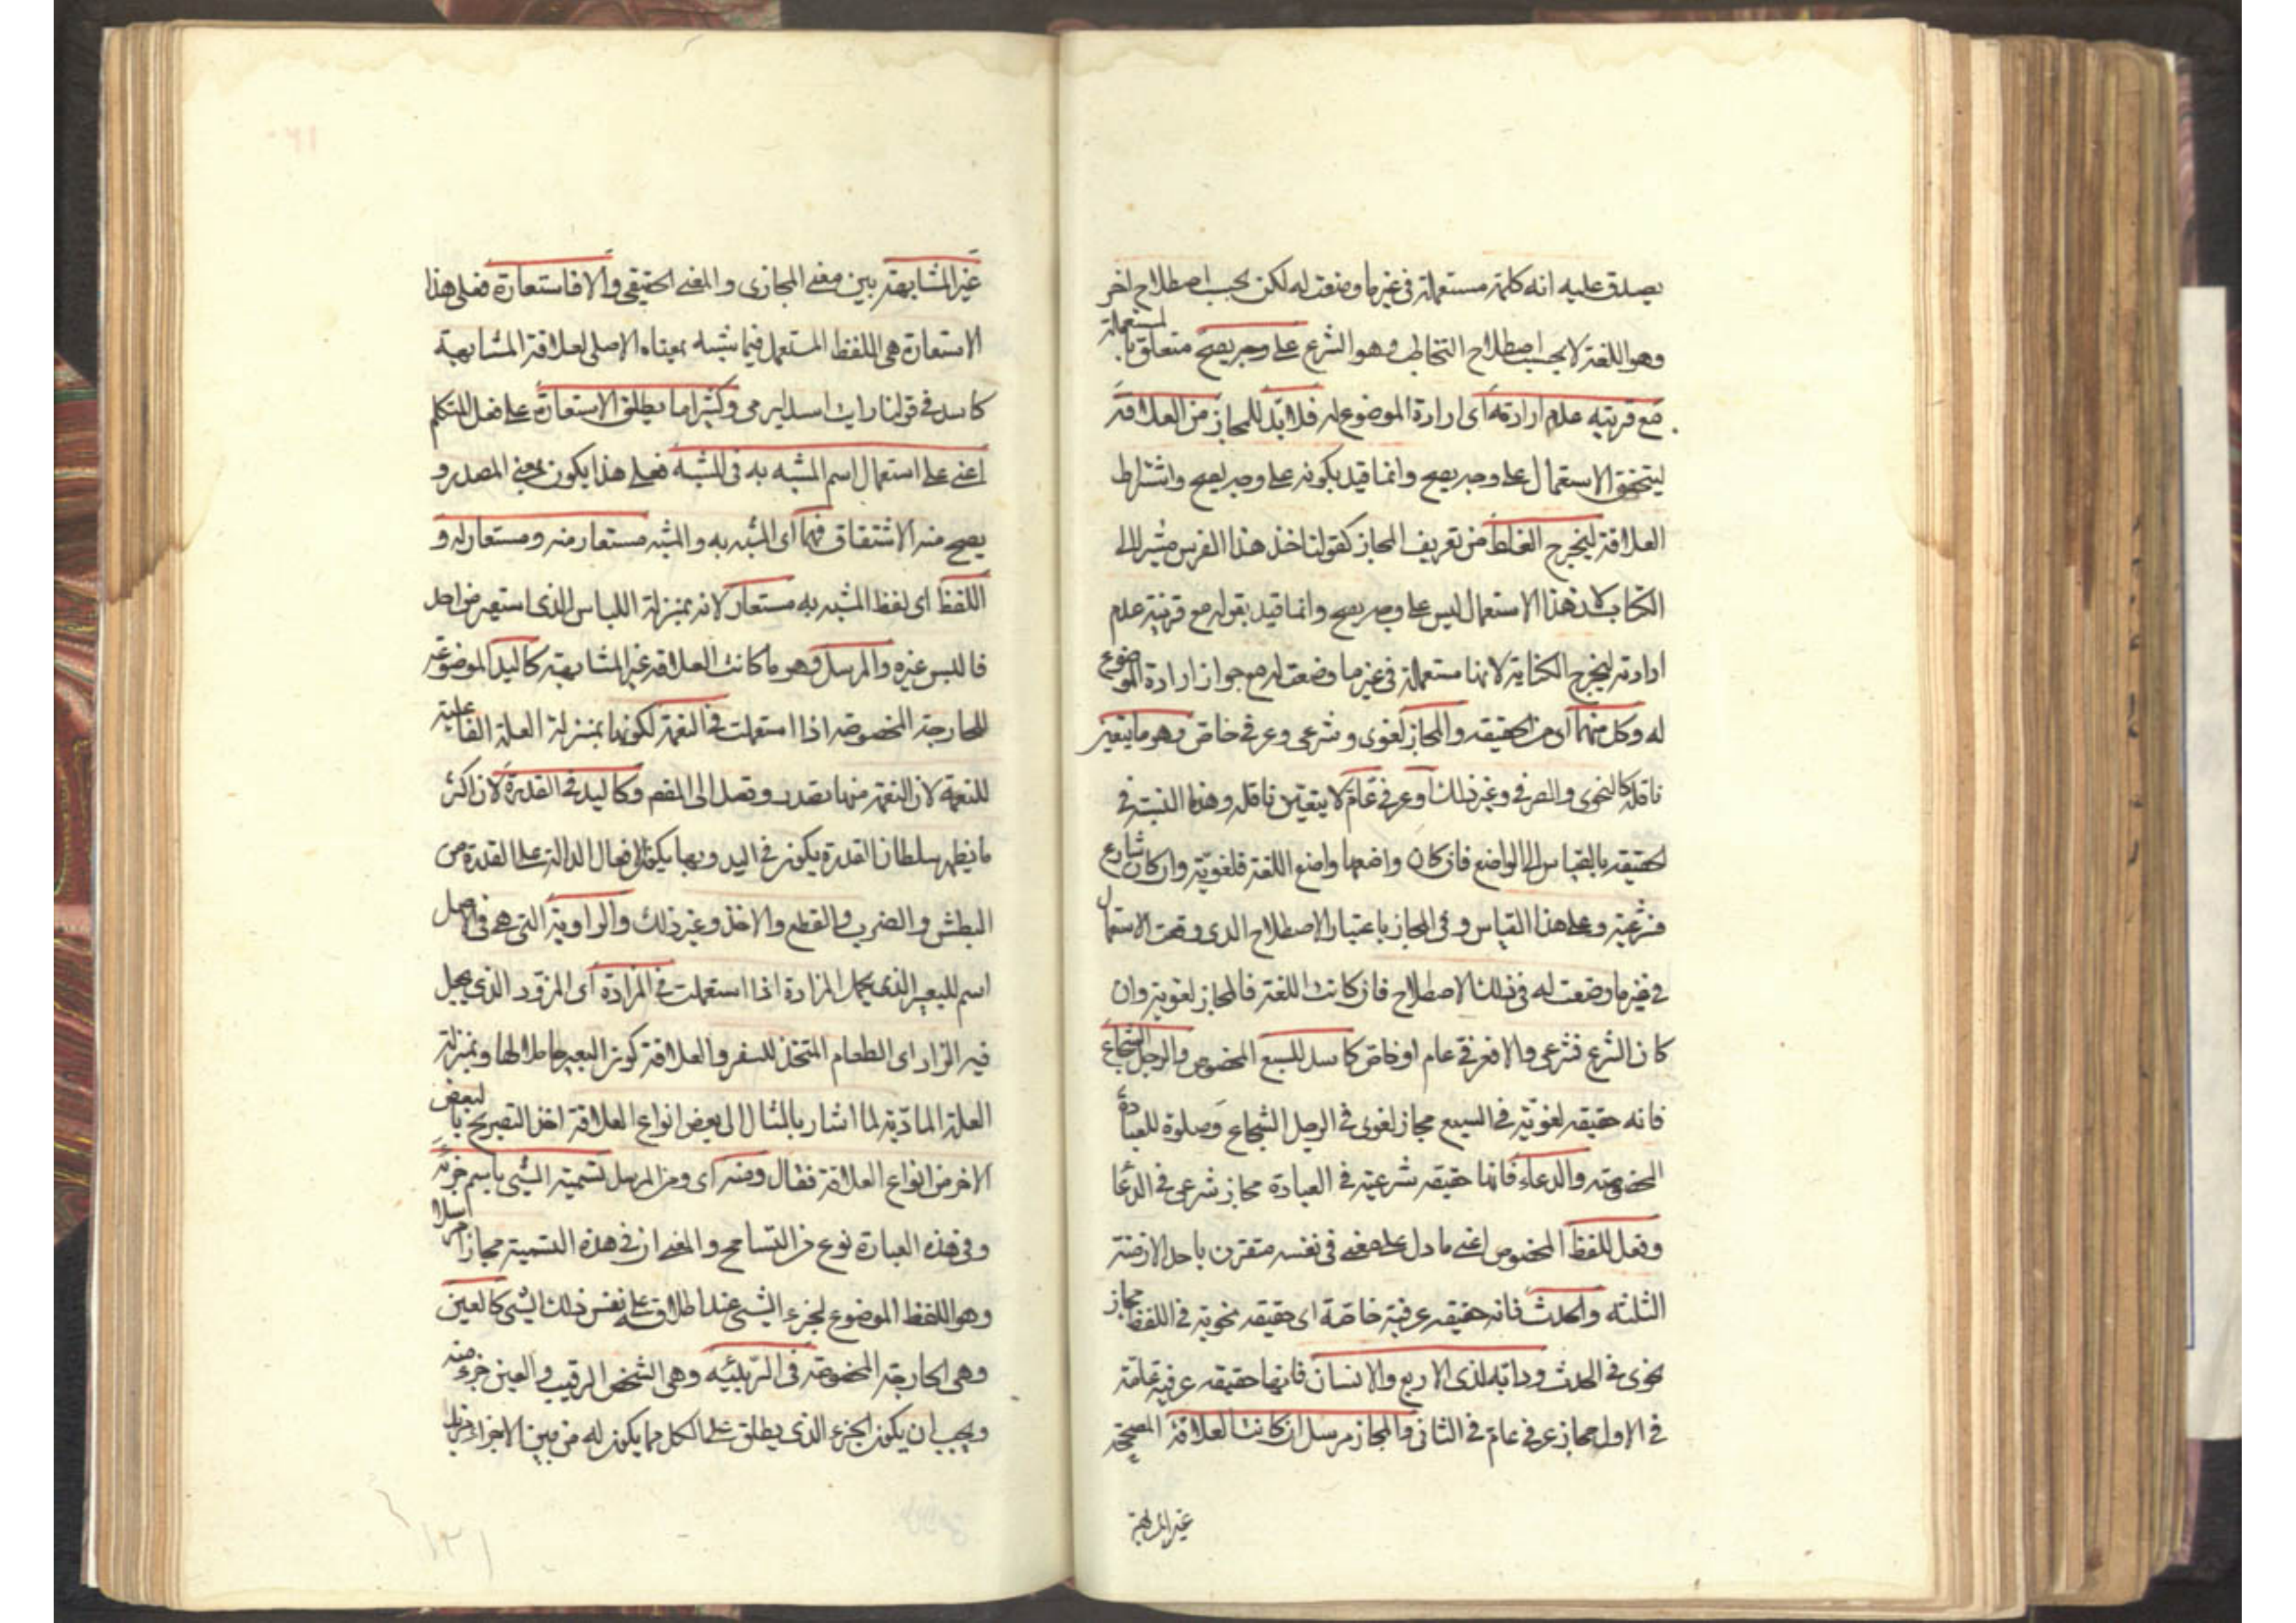 يصدق عليه انه كلمة مستعملة فى غير ما وضعت له لكن بحسب اصطلاح اخر
وهو اللغة لا بحسب اصطلاح التخاطب وهو الشرع على وجه يصح متعلق بالمستعملة
مع قرينة عدم ارادته اى ارادة الموضوع له فلا بدّ للمجاز من العلاقة
ليتحقق الاستعمال على وجه يصح وانما قيد بكونه على وجه يصح واشتراط
العلاقة ليخرج الغلط من تعريف المجاز كقولنا خذ هذا الفرس مشيرا الى
الكتاب لان هذا الاستعمال ليس على وجه يصح وانما قيد بقوله مع قرينة عدم
ارادته ليخرج الكناية لانها مستعملة فى غير ما وضعت له مع جواز ارادة الموضوع
له وكل منهما اى من الحقيقة والمجاز لغوى وشرعى وعرفى خاص وهو ما يتعين
ناقله كالنحوى والصرفى وغير ذلك او عرفى عامّ لا يتعين ناقله وهذا النسبة فى
الحقيقة بالقياس الى الواضع فان كان واضعها واضع اللغة فلغويّة وان كان شارع
فشرعية وعلى هذا القياس وفى المجاز باعتبار الاصطلاح الذى وقعت الاستعمال
فى غير ما وضعت له فى ذلك الاصطلاح فان كانت اللغة فالمجاز لغوية وان
كان الشرع فشرعى والا فعرفى عام او خاص كاسد للسبع المخصوص والرجل الشجاع
فانه حقيقة لغويّة فى السبع مجاز لغوى فى الرجل الشجاع وصلوة للعبادة
المخصوصة والدعاء فانها حقيقة شرعية فى العبادة مجاز شرعى فى الدعا
وفعل للفظ المخصوص اعنى ما دل على معنى فى نفسه مقترن باحد الازمنة
الثلثه والحدث فانه حقيقة عرفية خاصّة اى حقيقة نحوية فى اللفظ مجاز
نحوى فى الحدث ودابه لذى الاربع والانسان فانها حقيقة عرفية عامّة
فى الاول مجاز عرفى عامّ فى الثانى والمجاز مرسل ان كانت العلاقة المصححة
غير المشابهة
غير المشابهة بين معنى المجازى والمعنى الحقيقى والا فاستعارة فعلى هذا
الاستعارة هى اللفظ المستعمل فيما شبه بمعناه الاصلى لعلاقة المشابهة
كاسد فى قولنا رايت اسدا يرمى وكثيرا ما يطلق الاستعارة على فعل المتكلم
اعنى على استعمال اسم المشبه به فى المشبه فعلى هذا يكون بمعنى المصدر و
يصح منه الاشتقاق فهما اى المشبه به والمشبه مستعار منه ومستعار له و
اللفظ اى لفظ المشبه به مستعار لانه بمنزلة اللباس الذى استعير من احد
فالبس غيره والمرسل وهو ما كانت العلاقة غير المشابهة كاليد الموضوعة
للجارحة المخصوصة اذا استعملت فى النعمة لكونها بمنزلة العلة الفاعلية
للنعمة لان النعمة منها تصدر وتصل الى المنعم وكاليد فى القدرة لان اكثر
ما يظهر سلطان القدرة يكون فى اليد وبها يكون الافعال الدالة على القدرة من
البطش والضرب والقطع والاخذ وغير ذلك والراوية التى هى فى الاصل
اسم للبعير الذى يحمل المزادة اذا استعملت فى المزادة اى المزود الذى يجعل
فيه الزاد اى الطعام المتخذ للسفر والعلاقة كون البعير حاملا لها وبمنزلة
العلة المادّية لما اشار بالمثال الى بعض انواع العلاقة اخذ التصريح بالبعض
الاخر من انواع العلاقة فقال ومنه اى ومن المرسل تسمية الشىء باسم جزئه
وفى هذه العبارة نوع من التسامح والمعنى ان فى هذه التسمية مجازا مرسلا
وهو اللفظ الموضوع لجزء الشىء عند اطلاقه على نفس ذلك الشىء كالعين
وهى الجارحة المخصوصة فى الربيئه وهى الشخص الرقيب والعين جزء منه
ويجب ان يكون الجزء الذى يطلق على الكل مما يكون له من بين الاجزاء مزيد